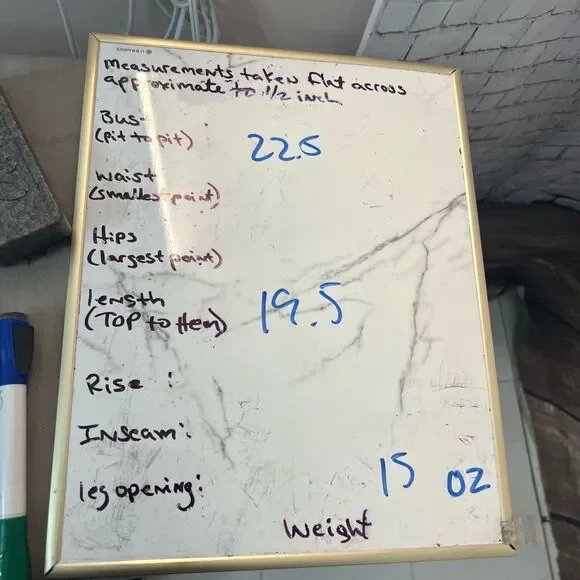 ® U BRANDS
Measurements taken flat across
approximate to 1/2 inch
Bus
(pit to pit) 22.5
waist
(smallest point)
Hips
(largest point)
length
(TOP to Hem) 19.5
Rise :
INseam:
leg opening: 15 oz
Weight